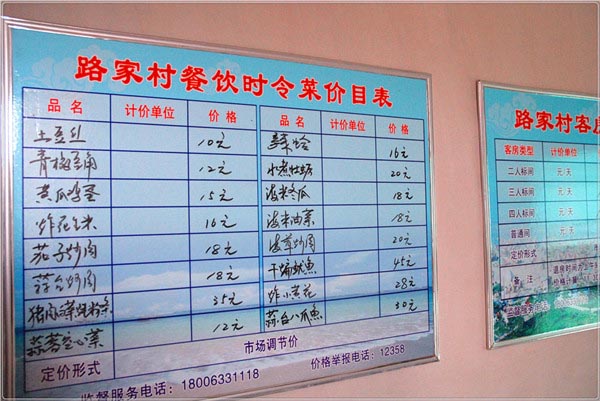 路家村餐饮时令菜价目表
品名 计价单位 价格 品名 计价单位 价格
土豆丝 10元 16元
12元 水煮牡蛎 20元
黄瓜鸡蛋 15元 海米冬瓜 18元
炸花生米 16元 海米油菜 18元
茄子炒肉 18元 菠菜炒肉 20元
蒜台炒肉 18元 干煸鱿鱼 45元
猪肉 炖粉条 35元 炸小黄花 28元
蒜蓉空心菜 12元 蒜台八爪鱼 30元
定价形式 市场调节价
监督服务电话：18006331118 价格举报电话：12358
路家村客房
客房类型 计价单位
二人标间 元/天
三人标间 元/天
四人标间 元/天
普通间 元/天
定价形式
备注 退房时间为
价格计算
监督服务电话